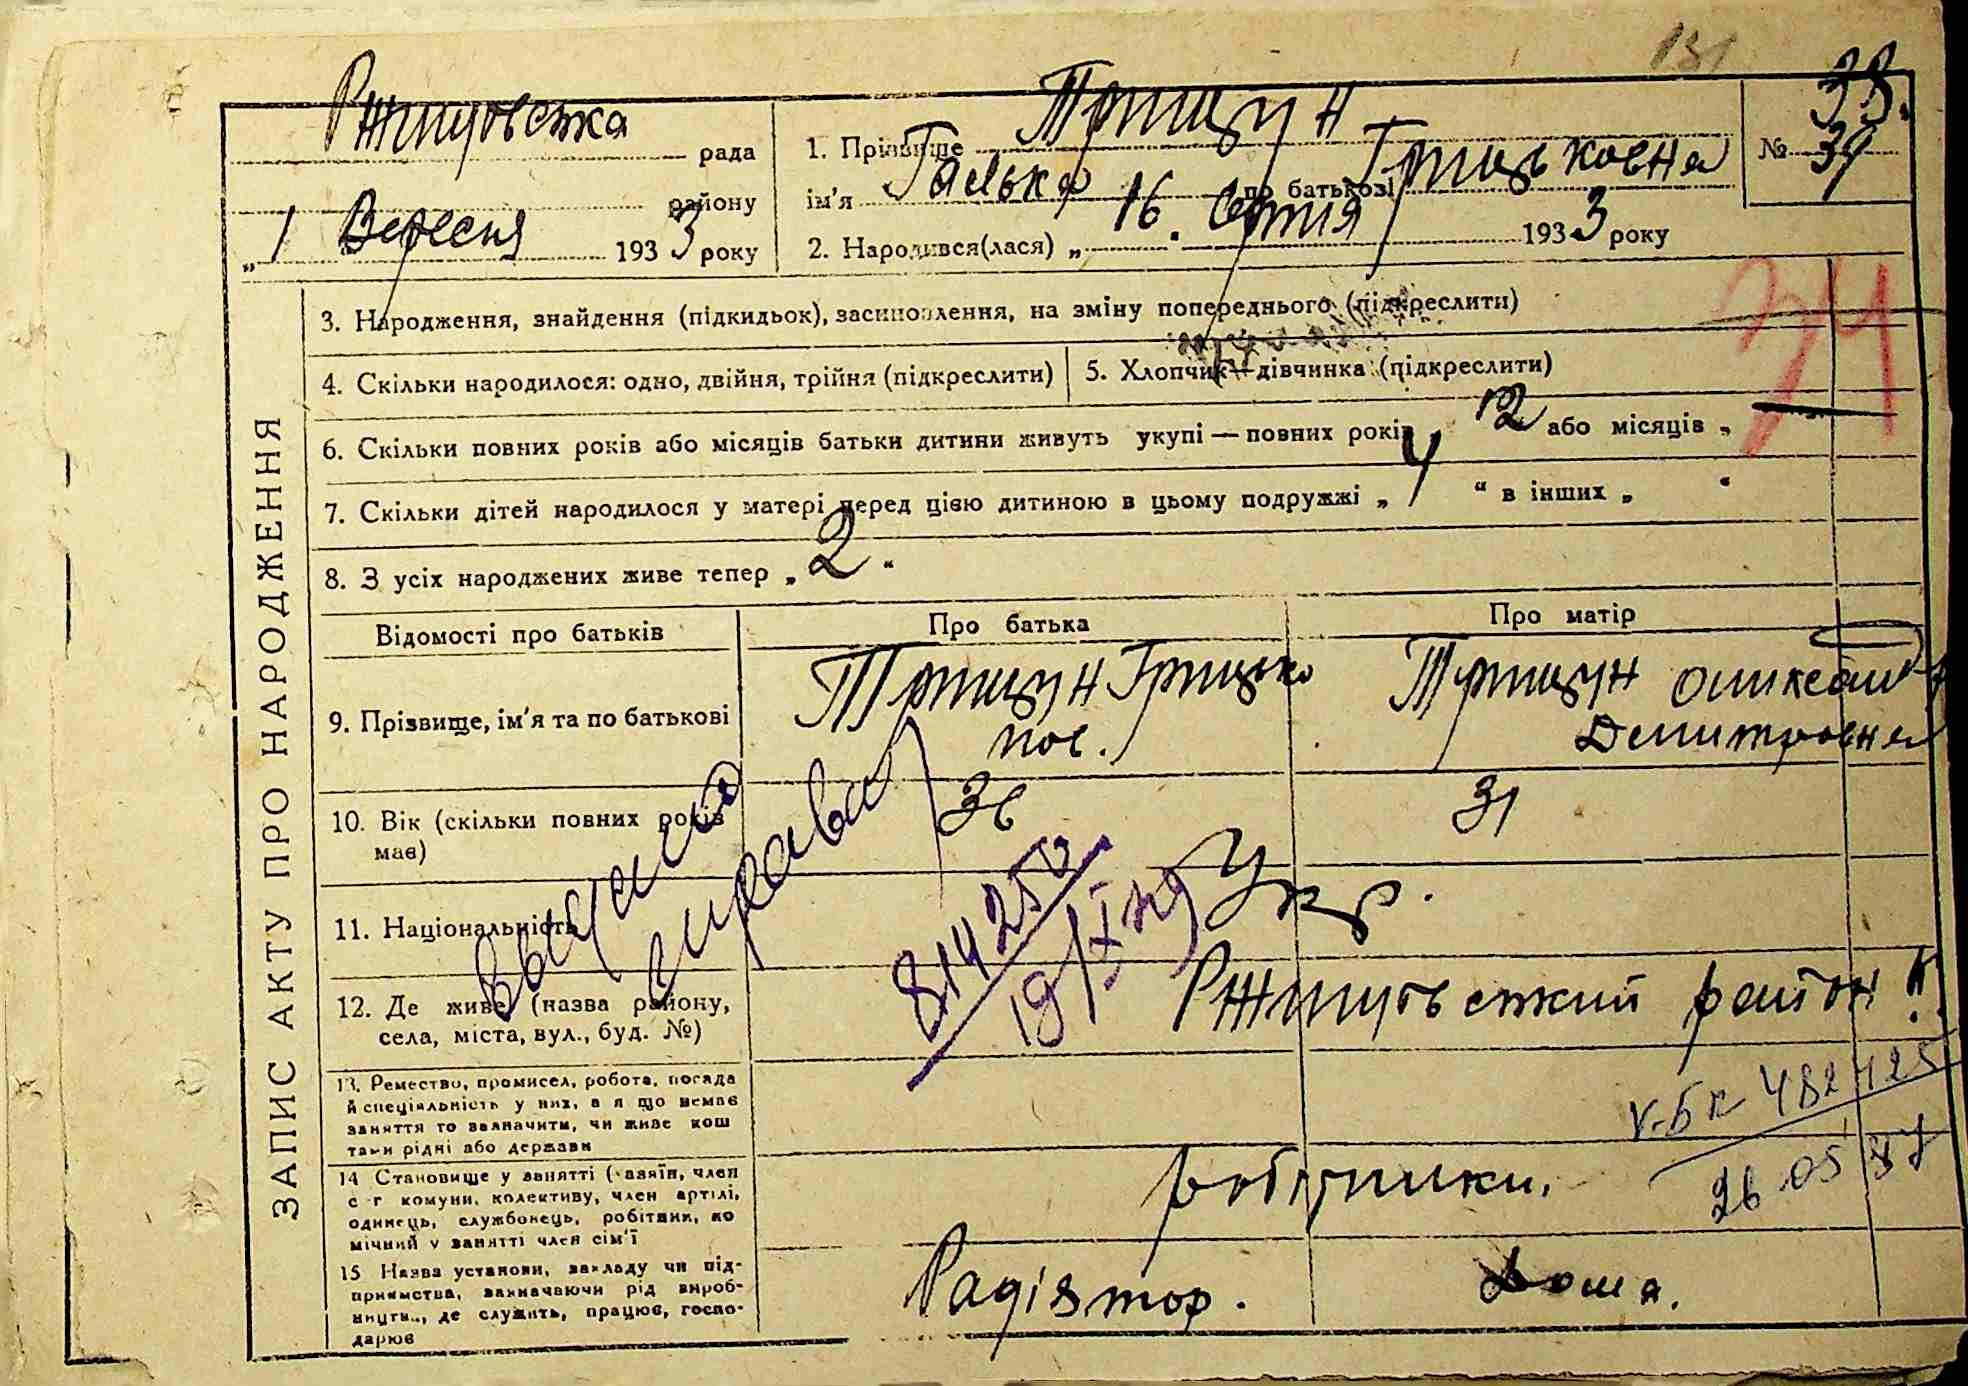 131
Ржищовська рада
району
„ 1 Вересня 1933 року
1. Прізвище Трищун
ім'я Галька по батькові Грицьковна
2. Народився(лася) „ 16. Серпня 1933 року
№ 38.
39
34
ЗАПИС АКТУ ПРО НАРОДЖЕННЯ
3. Народження, знайдення (підкидьок), засиновлення, на зміну попереднього (підкреслити)
4. Скільки народилося: одно, двійня, трійня (підкреслити)
5. Хлопчик—дівчинка (підкреслити)
6. Скільки повних років або місяців батьки дитини живуть укупі — повних років „ 12 або місяців „
7. Скільки дітей народилося у матері перед цією дитиною в цьому подружжі „ 4 “ в інших „ “
8. З усіх народжених живе тепер „ 2 “
Відомості про батьків
Про батька
Про матір
9. Прізвище, ім'я та по батькові
Трищун Грицько
Трищун
Демитровна
10. Вік (скільки повних років має)
31
11. Національність
Укр.
12. Де живе (назва району,
села, міста, вул., буд. №)
Ржищівський район
13. Ремество, промисел, робота, посада
й спеціяльність у них, а я що немає
заняття то зазначити, чи живе кош
тами рідні або держави
14 Становище у занятті (хазяїн, член
с-г комуни, колективу, член артілі,
одинець, службовець, робітник, по
мічний у занятті член сім'ї
робітники.
15 Назва установи, закладу чи під-
приємства, зазначаючи рід вироб-
ництва, де служить, працює, госпо-
дарює
Радіятор.
Дома.
814250
482425
26 05